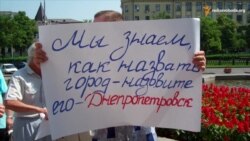 radiosvoboda.org
Мы знаем,
как назвать
город-назовите
его-Днепропетровск